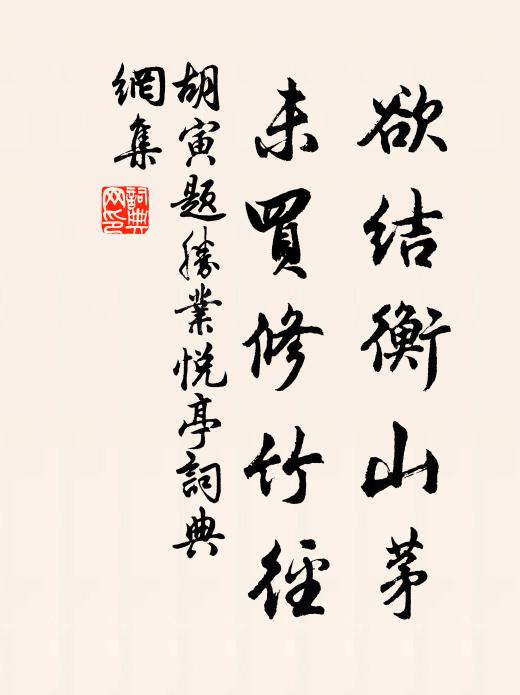 欲結衡山茅
未買修竹徑
胡寅題勝業悅亭詞典
網集
詞典網印